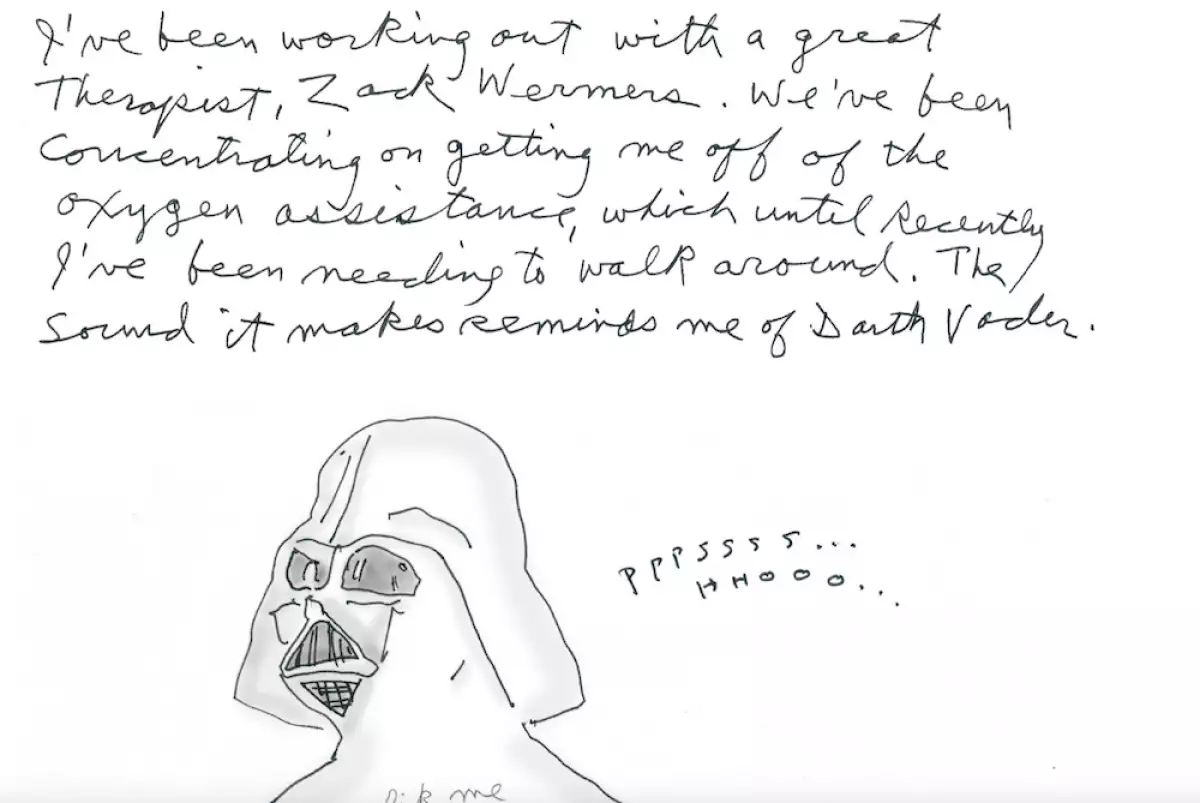 I've been working out with a great
Therapist, Zack Wermers. We've been
concentrating on getting me off of the
oxygen assistance, which until recently
I've been needing to walk around. The
sound it makes reminds me of Darth Vader.
PPPSSSS...
HHOOO...
me